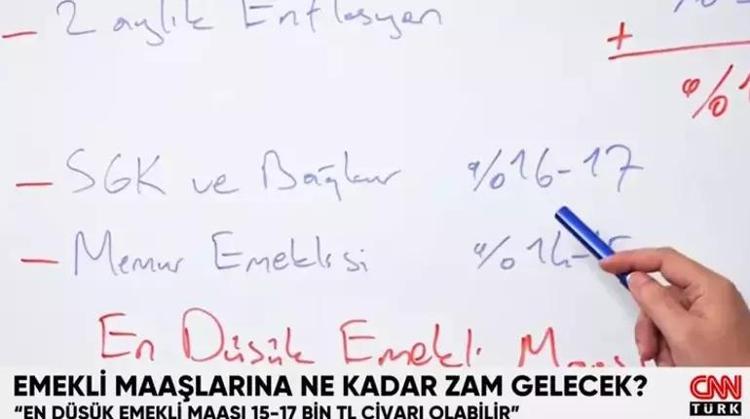 — 2 aylık Enflasyon
+
%1
— SGK ve Bağkur %16-17
— Memur Emeklisi %14-15
En Düşük Emekli Maaş
EMEKLİ MAAŞLARINA NE KADAR ZAM GELECEK?
"EN DÜŞÜK EMEKLİ MAAŞI 15-17 BİN TL CİVARI OLABİLİR"
CNN
TÜRK